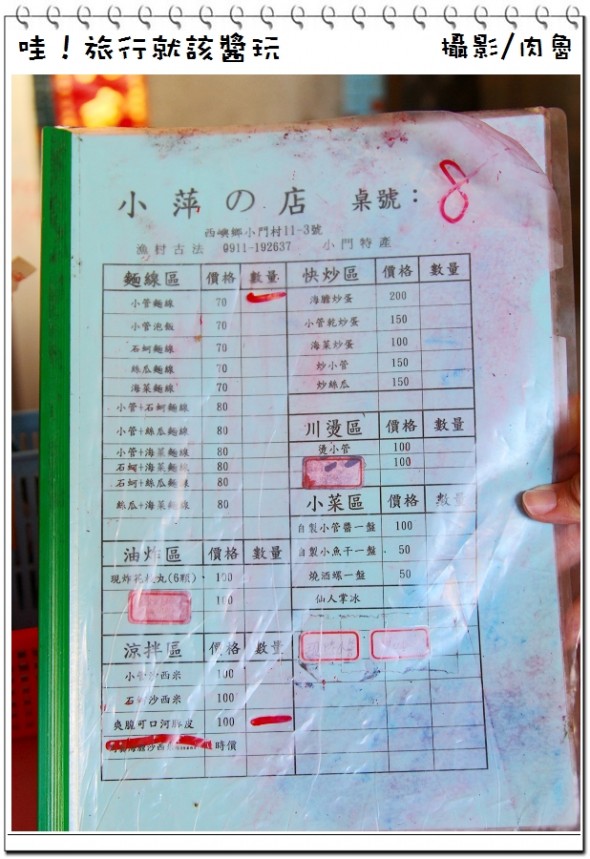 哇!旅行就該醬玩
攝影/肉魯
小萍の店 桌號:8
西嶼鄉小門村11-3號
漁村古法 0911-192637 小門特產
麵線區 價格 數量
小管麵線 70
小管泡飯 70
石蚵麵線 70
絲瓜麵線 70
海菜麵線 70
小管+石蚵麵線 80
小管+絲瓜麵線 80
小管+海菜麵線 80
石蚵+海菜麵線 80
石蚵+絲瓜麵線 80
絲瓜+海菜麵線 80
油炸區 價格 數量
現炸花枝丸(6顆) 100
100
涼拌區 價格 數量
小管沙西米 100
石蚵沙西米 100
爽脆可口河豚皮 100
時價
快炒區 價格 數量
海膽炒蛋 200
小管乾炒蛋 150
海菜炒蛋 100
炒小管 150
炒絲瓜 150
川燙區 價格 數量
燙小管 100
100
小菜區 價格 數量
自製小管醬一盤 100
自製小魚干一盤 50
燒酒螺一盤 50
仙人掌冰